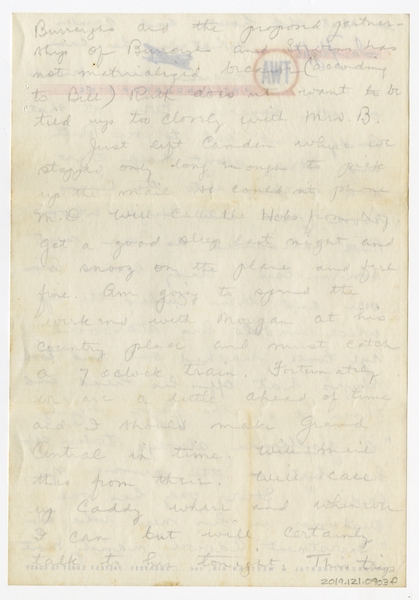 Burrizes and the proposed partner-
ship of Burrizes and has
not materialized because (according
to Bill) Rich does not want to be
tied up too closely with Mrs. B.
Just left Camden where we
stopped only long enough to pick
up the mail so could not phone
M.O. Will call the
got a good sleep last night and
a snooze on the plane and feel
fine. Am going to spend the
weekend with Morgan at his
country place and must catch
a 7 oclock train. Fortunately
we are a little ahead of time
and I should make Grand
Central in time. Will mail
this from there. Will call
up Caddy where and whenever
I can but will certainly
talk to tonight. This
AWT
2019.121.0903f